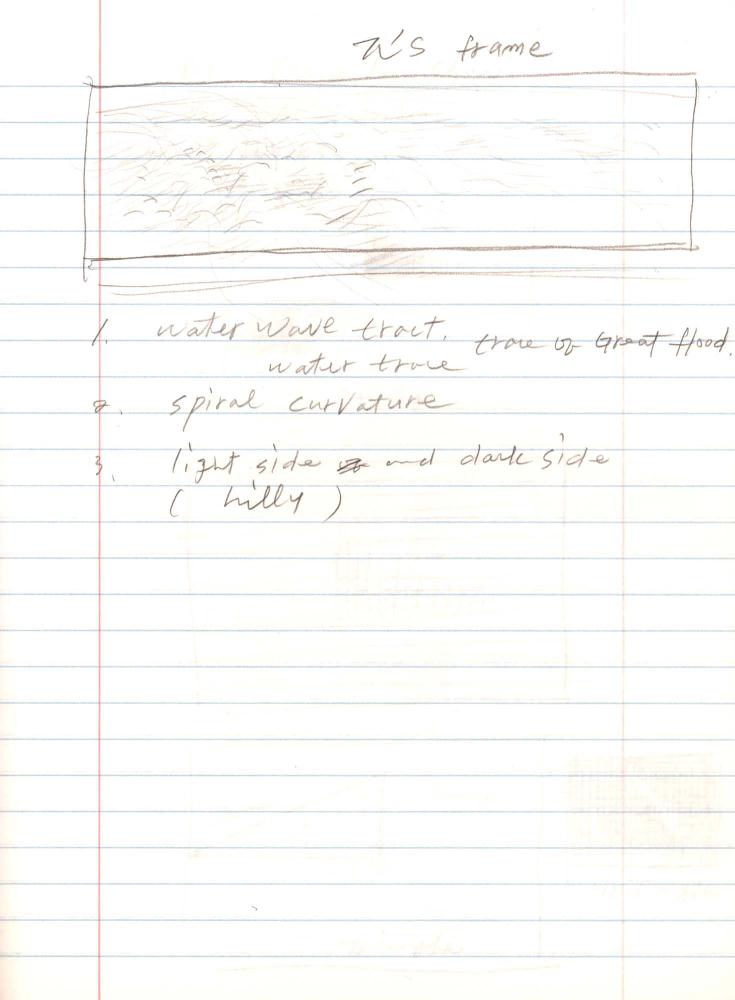 π's frame
1. water wave tract. trace of Great flood.
water trace
2. spiral curvature
3. light side and dark side
(hilly)